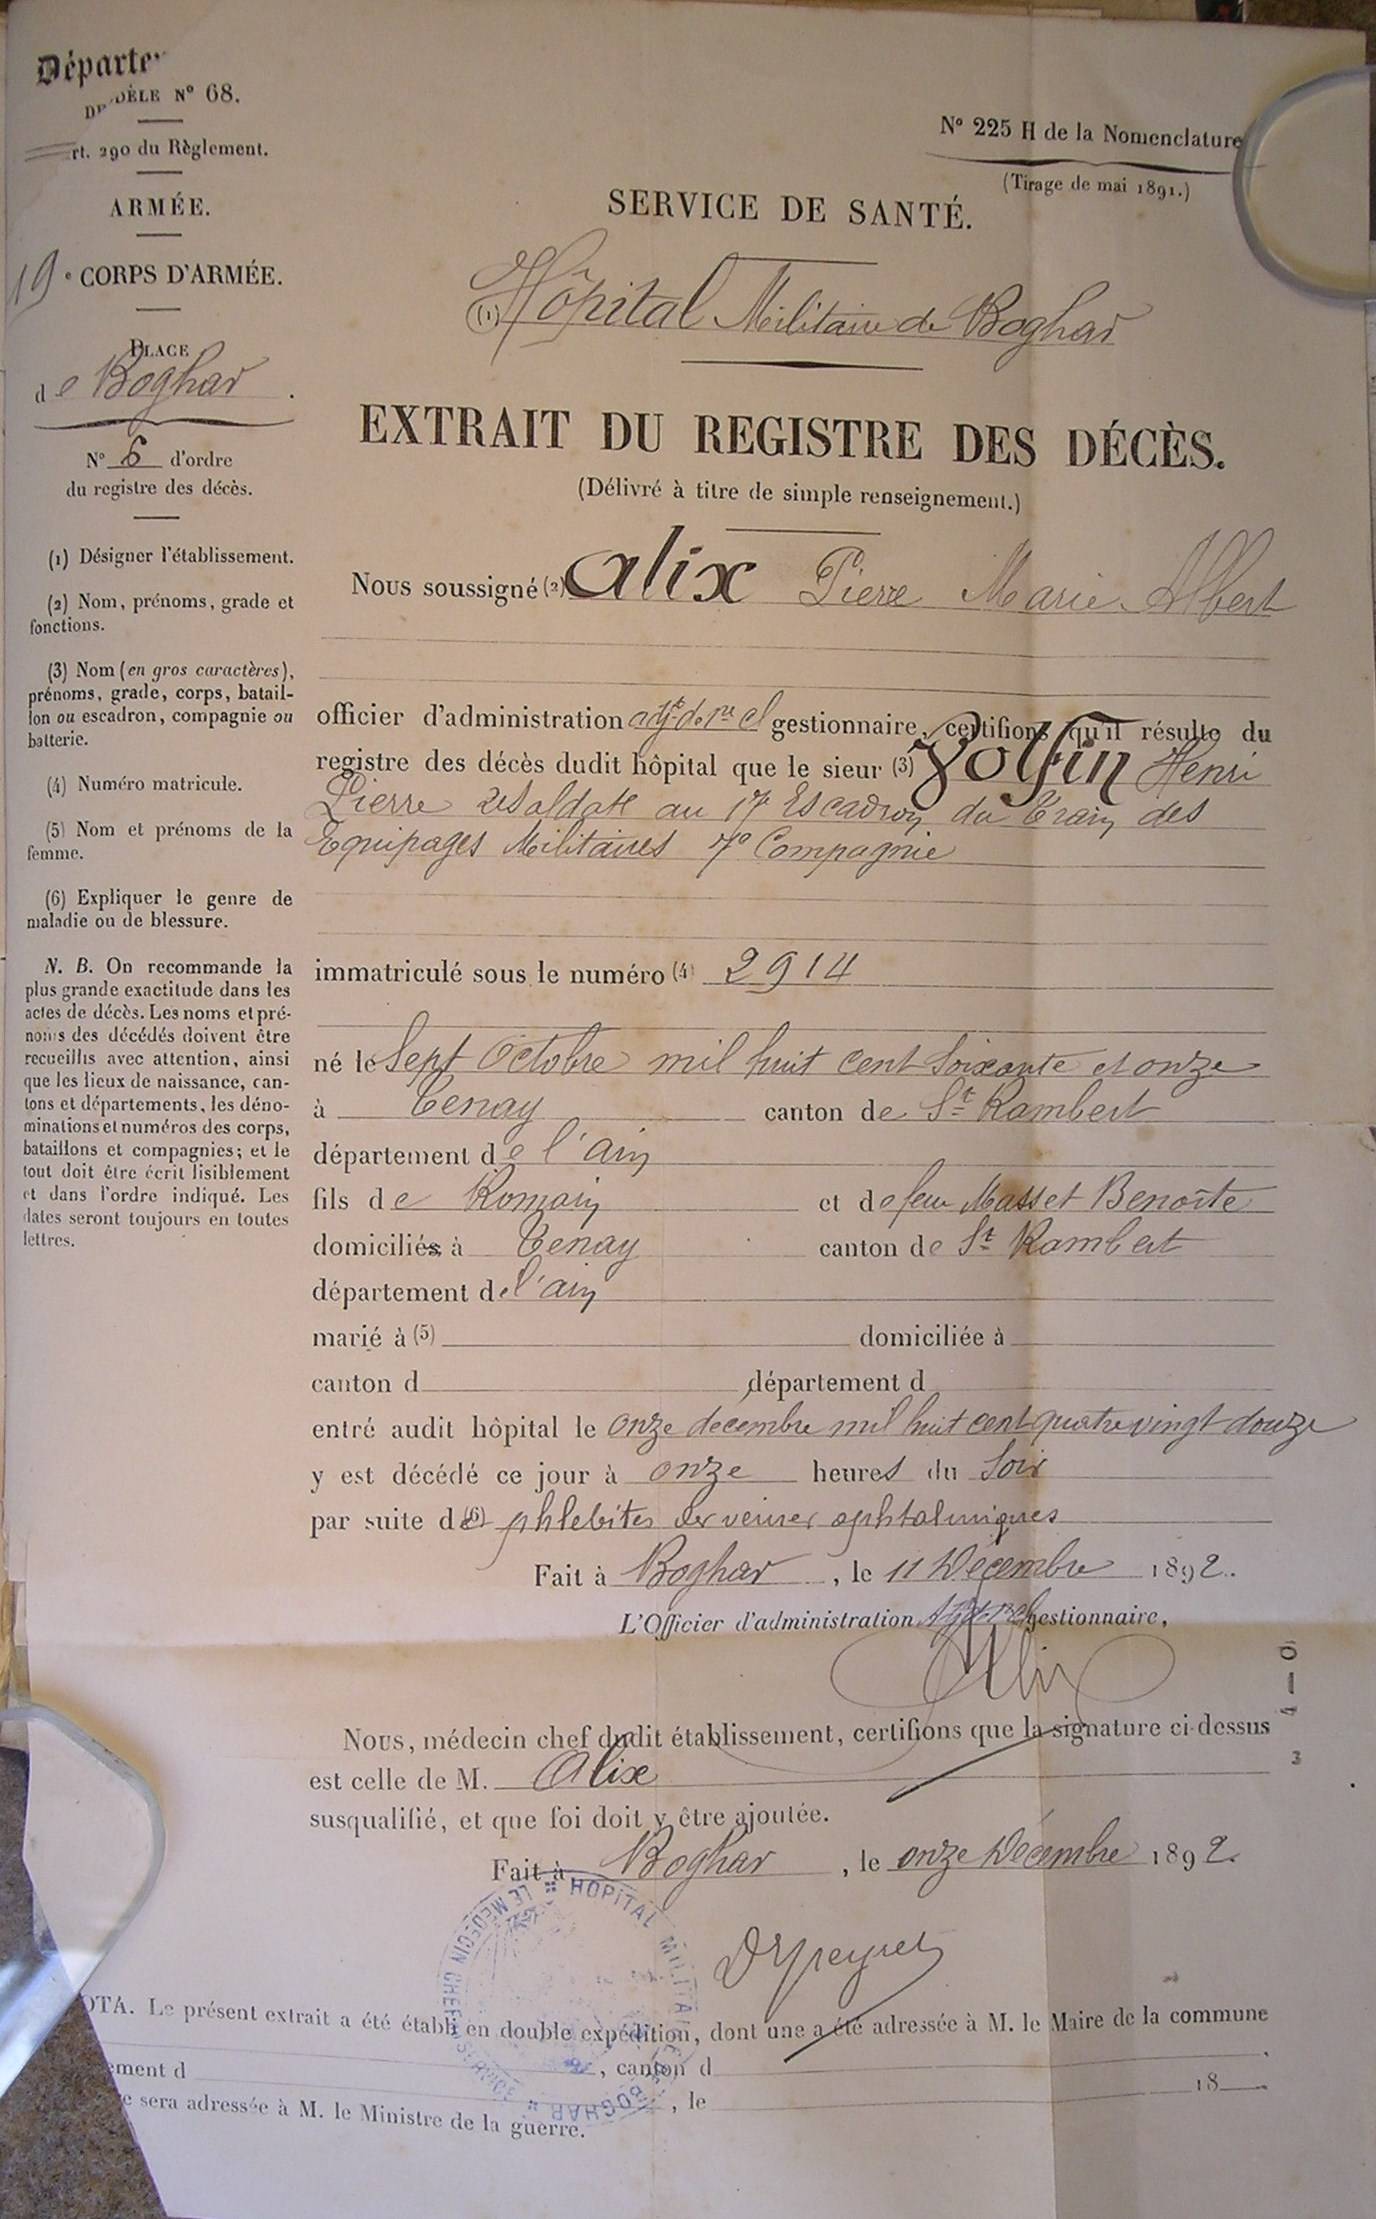 Départe
DÈLE Nº 68.
rt. 290 du Règlement.
ARMÉE.
19e CORPS D'ARMÉE.
PLACE
de Boghar.
Nº 6 d'ordre
du registre des décès.
(1) Désigner l'établissement.
(2) Nom, prénoms, grade et
fonctions.
(3) Nom (en gros caractères),
prénoms, grade, corps, batail-
lon ou escadron, compagnie ou
batterie.
(4) Numéro matricule.
(5) Nom et prénoms de la
femme.
(6) Expliquer le genre de
maladie ou de blessure.
N. B. On recommande la
plus grande exactitude dans les
actes de décès. Les noms et pré-
noms des décédés doivent être
recueillis avec attention, ainsi
que les lieux de naissance, can-
tons et départements, les déno-
minations et numéros des corps,
bataillons et compagnies; et le
tout doit être écrit lisiblement
et dans l'ordre indiqué. Les
dates seront toujours en toutes
lettres.
Nº 225 H de la Nomenclature
(Tirage de mai 1891.)
SERVICE DE SANTÉ.
(1) Hôpital Militaire de Boghar
EXTRAIT DU REGISTRE DES DÉCÈS.
(Délivré à titre de simple renseignement.)
Nous soussigné (2) Alix Pierre Marie Albert
officier d'administration adjt de 1re cl gestionnaire, certifions qu'il résulte du
registre des décès dudit hôpital que le sieur (3) Volfin Henri
Pierre 2e Soldat au 17 Escadron du Train des
Equipages Militaires 7e Compagnie
immatriculé sous le numéro (4) 2914
né le Sept Octobre mil huit cent Soixante et onze
à Tenay canton de St Rambert
département de l'ain
fils de Romain et de feue Masset Benoîte
domiciliés à Tenay canton de St Rambert
département de l'ain
marié à (5) domiciliée à
canton d département d
entré audit hôpital le onze décembre mil huit cent quatre vingt douze
y est décédé ce jour à onze heures du Soir
par suite de (6) phlébites des veines ophtalmiques
Fait à Boghar, le 11 Décembre 1892.
L'Officier d'administration Adjt 1re cl gestionnaire,
Alix
Nous, médecin chef dudit établissement, certifions que la signature ci-dessus
est celle de M. Alix
susqualifié, et que foi doit y être ajoutée.
Fait à Boghar, le onze Décembre 1892.
HOPITAL MILITAIRE DE BOGHAR
LE MEDECIN CHEF DE SERVICE
OTA. Le présent extrait a été établi en double expédition, dont une a été adressée à M. le Maire de la commune
ement d , canton d .
, le 18 .
e sera adressée à M. le Ministre de la guerre.